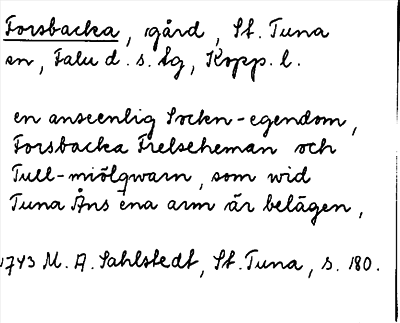 Forsbacka, gård, St. Tuna
sn, Falu d. s. lg, Kopp. l.
en anseenlig Sockn-egendom,
Forsbacka Frelseheman och
Tull-miölqwarn, som wid
Tuna Åns ena arm är belägen,
1743 M. A. Sahlstedt, St. Tuna, s. 180.